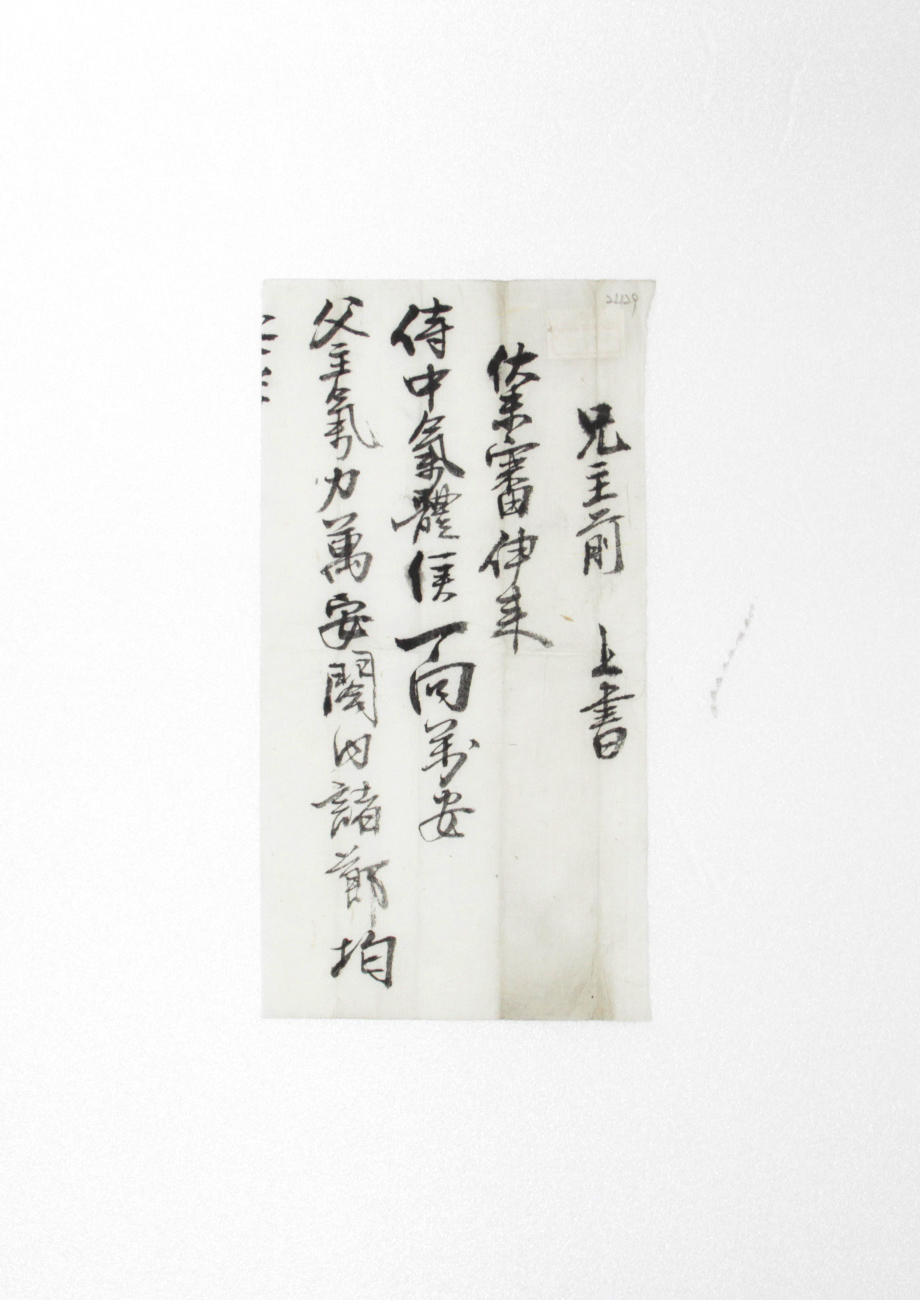 兄主前 上書
伏未審伻來
侍中氣體候一向萬安
父主氣力萬安閤內諸節均
21129